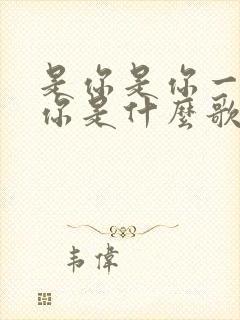 是你是你一
你是什麼歌
韦偉